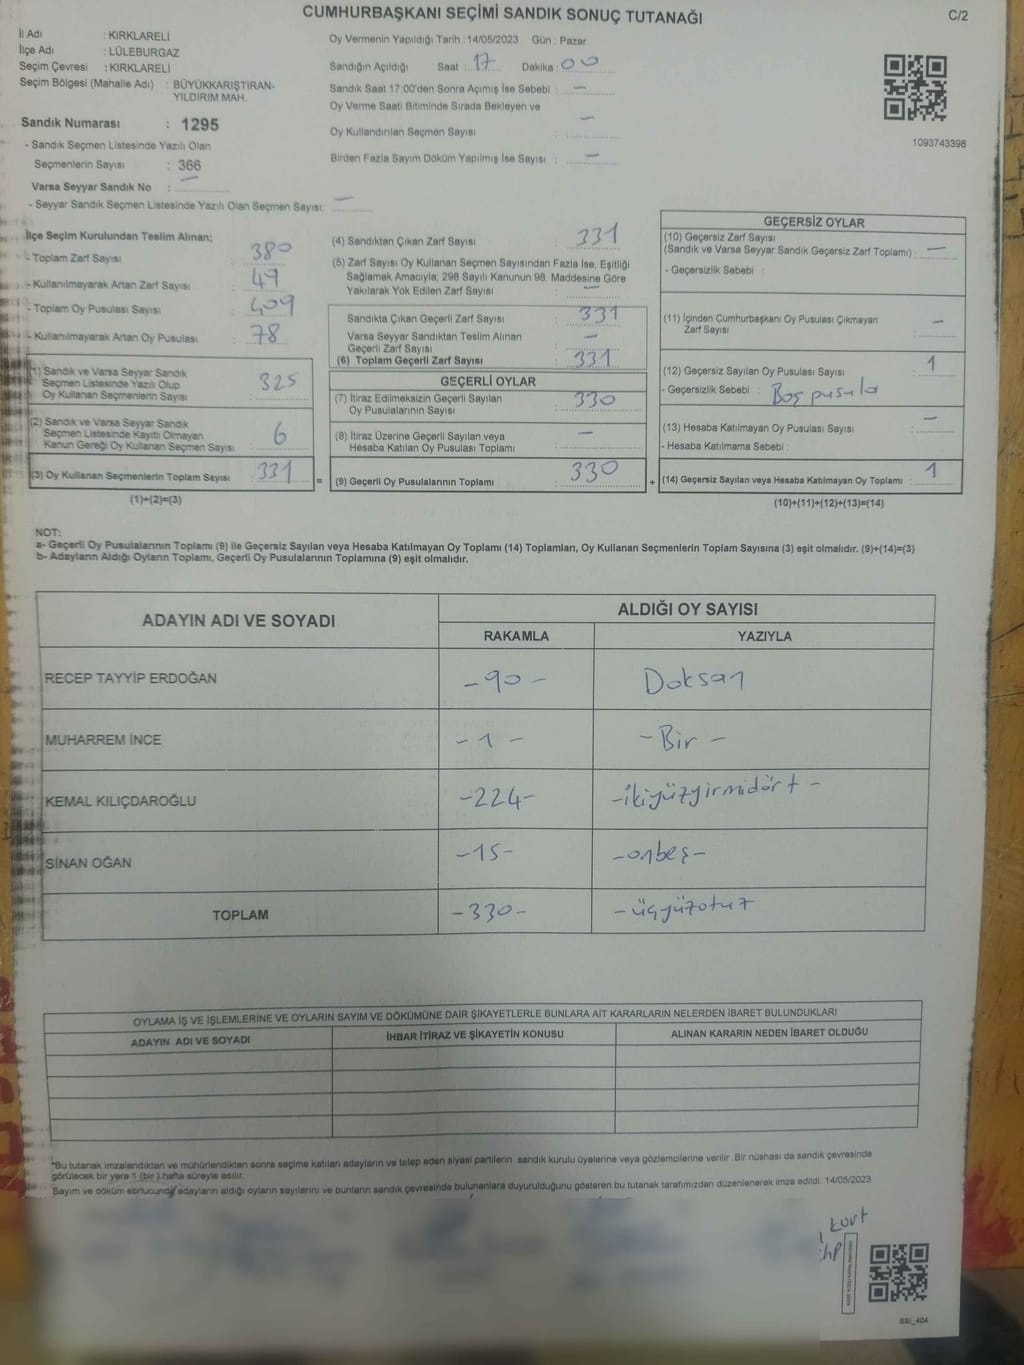 CUMHURBAŞKANI SEÇİMİ SANDIK SONUÇ TUTANAĞI
C/2
İl Adı : KIRKLARELİ
İlçe Adı : LÜLEBURGAZ
Seçim Çevresi : KIRKLARELİ
Seçim Bölgesi (Mahalle Adı) : BÜYÜKKARIŞTIRAN-
YILDIRIM MAH.
Sandık Numarası : 1295
- Sandık Seçmen Listesinde Yazılı Olan
Seçmenlerin Sayısı : 366
Varsa Seyyar Sandık No : —
- Seyyar Sandık Seçmen Listesinde Yazılı Olan Seçmen Sayısı: —
Oy Vermenin Yapıldığı Tarih : 14/05/2023 Gün : Pazar
Sandığın Açıldığı Saat : 17 Dakika : 00
Sandık Saat 17:00'den Sonra Açımış İse Sebebi : —
Oy Verme Saati Bitiminde Sırada Bekleyen ve
Oy Kullandırılan Seçmen Sayısı : —
Birden Fazla Sayım Döküm Yapılmış İse Sayısı : —
1093743398
İlçe Seçim Kurulundan Teslim Alınan;
- Toplam Zarf Sayısı : 380
- Kullanılmayarak Artan Zarf Sayısı : 49
- Toplam Oy Pusulası Sayısı : 409
- Kullanılmayarak Artan Oy Pusulası : 78
(1) Sandık ve Varsa Seyyar Sandık
Seçmen Listesinde Yazılı Olup
Oy Kullanan Seçmenlerin Sayısı : 325
(2) Sandık ve Varsa Seyyar Sandık
Seçmen Listesinde Kayıtlı Olmayan
Kanun Gereği Oy Kullanan Seçmen Sayısı : 6
(3) Oy Kullanan Seçmenlerin Toplam Sayısı : 331 =
(1)+(2)=(3)
(4) Sandıktan Çıkan Zarf Sayısı : 331
(5) Zarf Sayısı Oy Kullanan Seçmen Sayısından Fazla İse, Eşitliği
Sağlamak Amacıyla; 298 Sayılı Kanunun 98. Maddesine Göre
Yakılarak Yok Edilen Zarf Sayısı : —
Sandıkta Çıkan Geçerli Zarf Sayısı : 331
Varsa Seyyar Sandıktan Teslim Alınan
Geçerli Zarf Sayısı : —
(6) Toplam Geçerli Zarf Sayısı : 331
GEÇERLİ OYLAR
(7) İtiraz Edilmeksizin Geçerli Sayılan
Oy Pusulalarının Sayısı : 330
(8) İtiraz Üzerine Geçerli Sayılan veya
Hesaba Katılan Oy Pusulası Toplamı : —
(9) Geçerli Oy Pusulalarının Toplamı : 330 +
GEÇERSİZ OYLAR
(10) Geçersiz Zarf Sayısı
(Sandık ve Varsa Seyyar Sandık Geçersiz Zarf Toplamı) : —
- Geçersizlik Sebebi :
(11) İçinden Cumhurbaşkanı Oy Pusulası Çıkmayan
Zarf Sayısı : —
(12) Geçersiz Sayılan Oy Pusulası Sayısı : 1
- Geçersizlik Sebebi : Boş pusula
(13) Hesaba Katılmayan Oy Pusulası Sayısı : —
- Hesaba Katılmama Sebebi :
(14) Geçersiz Sayılan veya Hesaba Katılmayan Oy Toplamı : 1
(10)+(11)+(12)+(13)=(14)
NOT:
a- Geçerli Oy Pusulalarının Toplamı (9) ile Geçersiz Sayılan veya Hesaba Katılmayan Oy Toplamı (14) Toplamları, Oy Kullanan Seçmenlerin Toplam Sayısına (3) eşit olmalıdır. (9)+(14)=(3)
b- Adayların Aldığı Oyların Toplamı, Geçerli Oy Pusulalarının Toplamına (9) eşit olmalıdır.
ADAYIN ADI VE SOYADI
ALDIĞI OY SAYISI
RAKAMLA YAZIYLA
RECEP TAYYİP ERDOĞAN -90- Doksan
MUHARREM İNCE -1- -Bir-
KEMAL KILIÇDAROĞLU -224- -ikiyüzyirmidört-
SİNAN OĞAN -15- -onbeş-
TOPLAM -330- -üçyüzotuz
OYLAMA İŞ VE İŞLEMLERİNE VE OYLARIN SAYIM VE DÖKÜMÜNE DAİR ŞİKAYETLERLE BUNLARA AİT KARARLARIN NELERDEN İBARET BULUNDUKLARI
ADAYIN ADI VE SOYADI İHBAR İTİRAZ VE ŞİKAYETİN KONUSU ALINAN KARARIN NEDEN İBARET OLDUĞU
*Bu tutanak imzalandıktan ve mühürlendikten sonra seçime katılan adayların ve talep eden siyasi partilerin sandık kurulu üyelerine veya gözlemcilerine verilir .Bir nüshası da sandık çevresinde
görülecek bir yere 1 (bir ) hafta süreyle asılır.
Sayım ve döküm sonucunda adayların aldığı oyların sayılarını ve bunların sandık çevresinde bulunanlara duyurulduğunu gösteren bu tutanak tarafımızdan düzenlenerek imza edildi. 14/05/2023
kurt
SSI_404